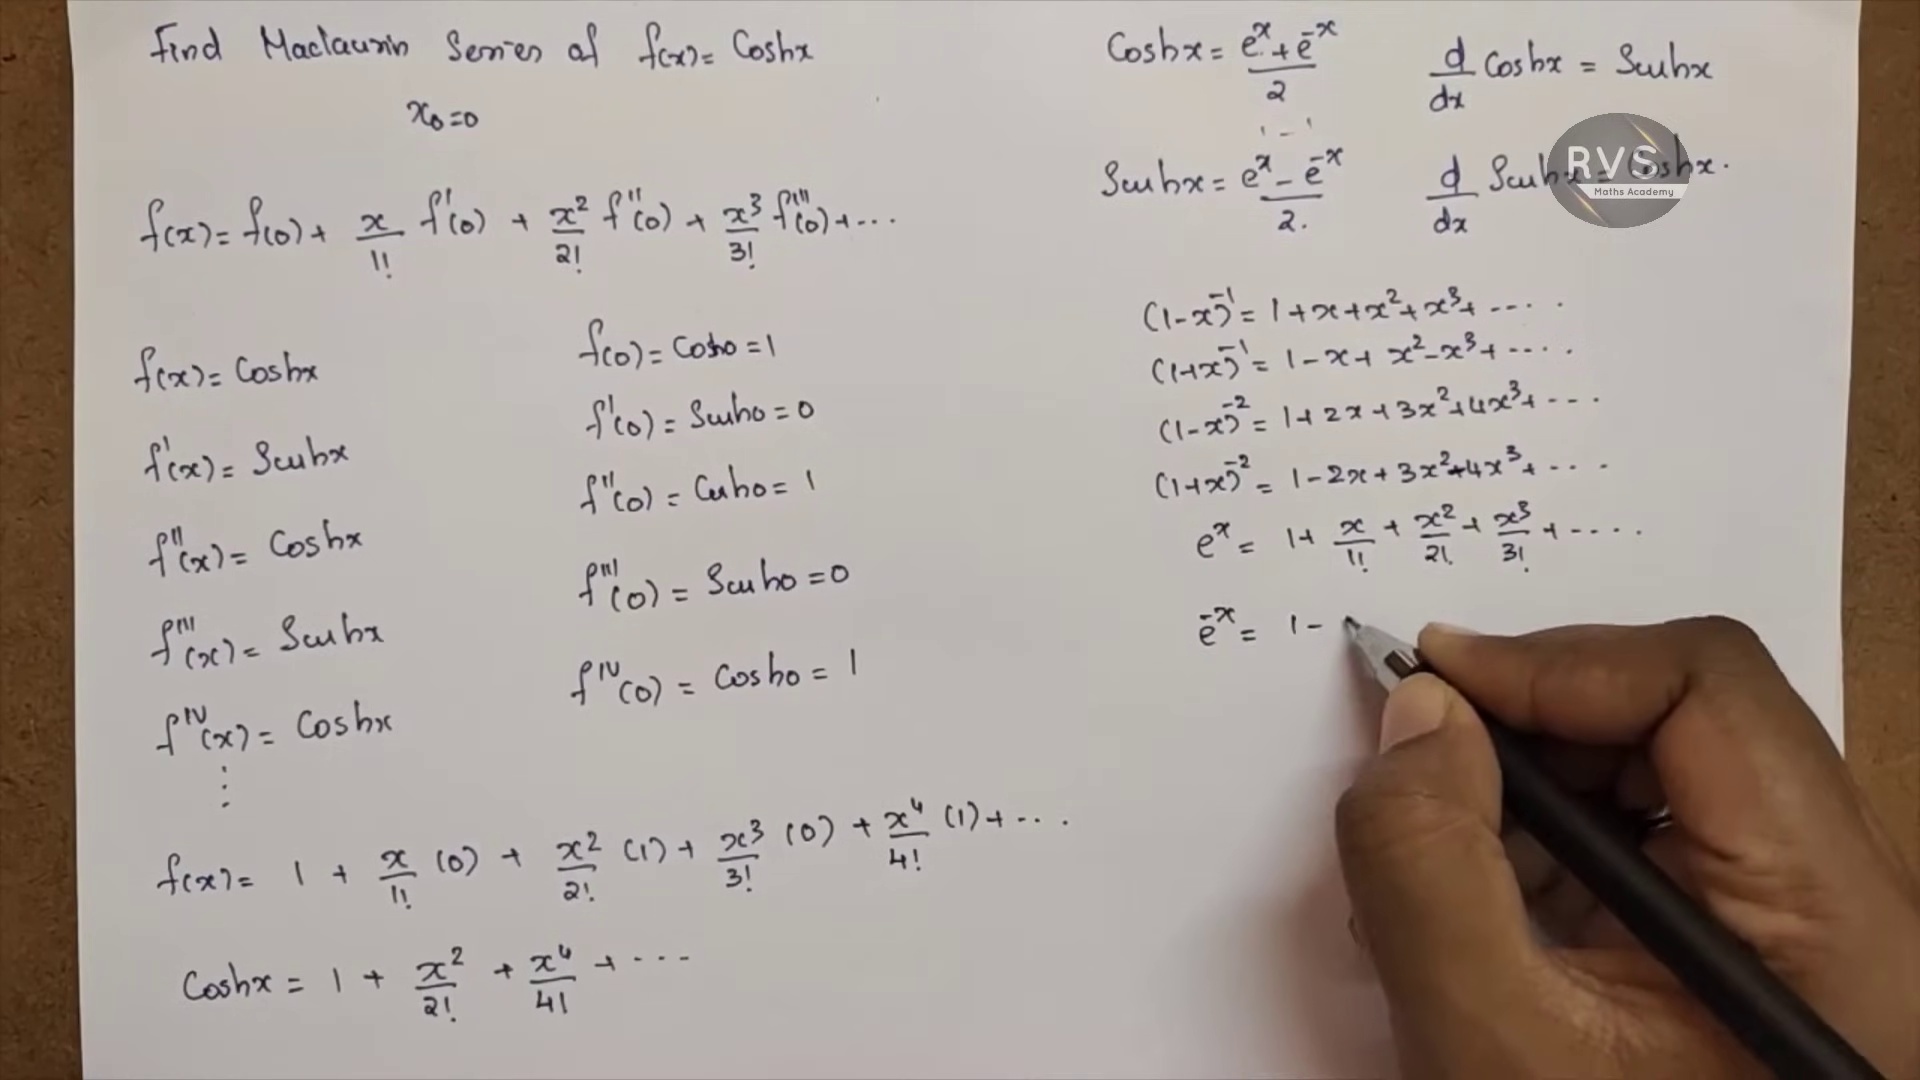 Find Maclaurin Series of f(x) = Coshx
x₀=0
f(x) = f(0) + x/1! f'(0) + x²/2! f''(0) + x³/3! f'''(0) + ...
f(x) = Coshx
f'(x) = Sinhx
f''(x) = Coshx
f'''(x) = Sinhx
f^IV(x) = Coshx
⋮
f(0) = Cosh0 = 1
f'(0) = Sinh0 = 0
f''(0) = Cosh0 = 1
f'''(0) = Sinh0 = 0
f^IV(0) = Cosh0 = 1
f(x) = 1 + x/1! (0) + x²/2! (1) + x³/3! (0) + x⁴/4! (1) + ...
Coshx = 1 + x²/2! + x⁴/4! + ...
Coshx = (e^x + e^-x)/2
d/dx Coshx = Sinhx
Sinhx = (e^x - e^-x)/2.
d/dx Sinhx = Coshx.
RVS
Maths Academy
(1-x)^-1 = 1 + x + x² + x³ + ....
(1+x)^-1 = 1 - x + x² - x³ + ....
(1-x)^-2 = 1 + 2x + 3x² + 4x³ + ...
(1+x)^-2 = 1 - 2x + 3x² - 4x³ + ...
e^x = 1 + x/1! + x²/2! + x³/3! + ....
e^-x = 1 -